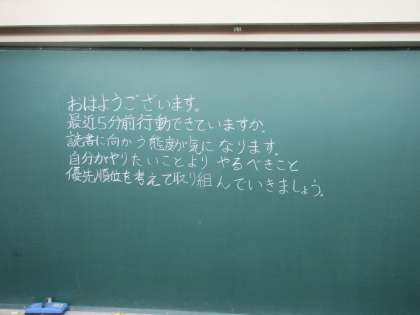 おはようございます。
最近5分前行動できていますか。
読書に向かう態度が気になります。
自分がやりたいことより やるべきこと
優先順位を考えて取り組んでいきましょう。